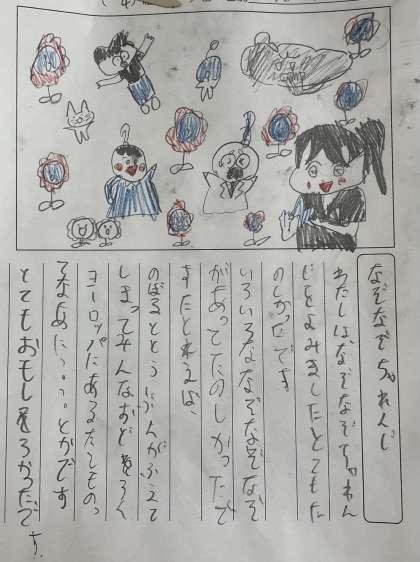 なぞなぞちゃれんじ
わたしはなぞなぞちゃれん
じをよみましたとてもた
のしかったです
いろいろななぞなぞなぞ
があってたのしかったで
すたとえるば、
のぼるととうぶんがふえて
しまってみんなおどろく
ヨーロッパにあるたてものっ
てなあに?。。とかです
とてもおもしろかったで
す。